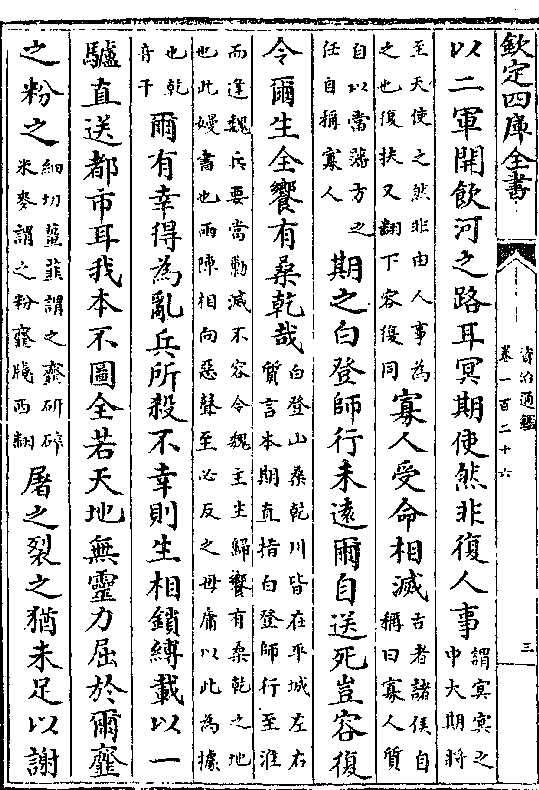 欽定四庫全書
資治通鑑
卷一百二十六
三
以二軍開飲河之路耳冥期使然非復人事
謂冥冥之
中大期將
至天使之然非由人事為
之也復扶又翻下容復同
寡人受命相滅
古者諸侯自
稱曰寡人質
自以當藩方之
任自稱寡人
期之白登師行未遠爾自送死豈容復
令爾生全饗有桑乾哉
白登山桑乾川皆在平城左右
質言本期直指白登師行至淮
而逢魏兵要當勦滅不容令魏主生歸饗有桑乾之地
也此嫚書也兩陣相向惡聲至必反之毋庸以此為據
也乾
音干
爾有幸得為亂兵所殺不幸則生相鎖縛載以一
驢直送都市耳我本不圖全若天地無靈力屈於爾韲
之粉之
細切薑韭謂之韲研碎
米麥謂之粉韲牋西翻
屠之裂之猶未足以謝